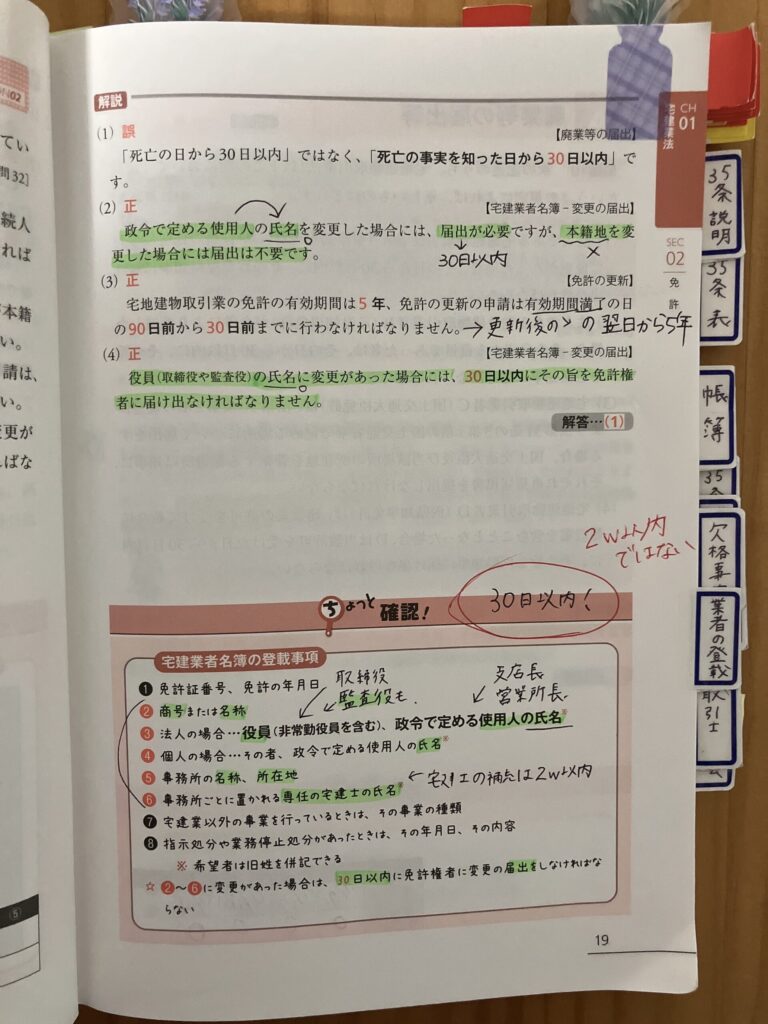 N02
てい
問32]
続人
れば
が本籍
い。
請は、
い。
変更が
ばな
(5)
解説
(1) 誤 【廃業等の届出】
「死亡の日から30日以内」ではなく、「死亡の事実を知った日から30日以内」で
す。
(2) 正 【宅建業者名簿－変更の届出】
政令で定める使用人の氏名を変更した場合には、届出が必要ですが、本籍地を変
更した場合には届出は不要です。
30日以内
×
(3) 正 【免許の更新】
宅地建物取引業の免許の有効期間は5年、免許の更新の申請は有効期間満了の日
の90日前から30日前までに行わなければなりません。
→更新後の〃の翌日から5年
(4) 正 【宅建業者名簿－変更の届出】
役員(取締役や監査役)の氏名に変更があった場合には、30日以内にその旨を免許権
者に届け出なければなりません。
解答…(1)
2w以内
ではない
ちょっと確認！
30日以内！
宅建業者名簿の登載事項
❶ 免許証番号、免許の年月日
取締役
監査役も.
支店長
営業所長
❷ 商号または名称
❸ 法人の場合…役員(非常勤役員を含む)、政令で定める使用人の氏名※
❹ 個人の場合…その者、政令で定める使用人の氏名※
❺ 事務所の名称、所在地
❻ 事務所ごとに置かれる専任の宅建士の氏名※
←宅建士の補充は2w以内
❼ 宅建業以外の事業を行っているときは、その事業の種類
❽ 指示処分や業務停止処分があったときは、その年月日、その内容
※ 希望者は旧姓を併記できる
☆ ❷〜❻に変更があった場合は、30日以内に免許権者に変更の届出をしなければな
らない
19
CH
01
宅建業法
SEC
02
免許
35条説明
35条表
帳簿
35条
欠格事
業者の登載
取引士